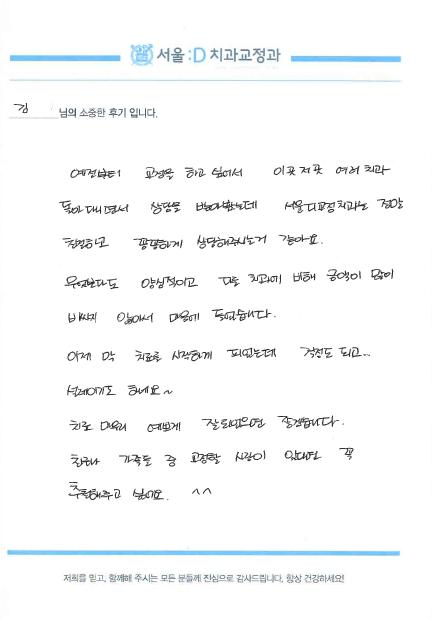 서울:D 치과교정과
김 님의 소중한 후기 입니다.
예전부터 교정을 하고 싶어서 이곳저곳 여러 치과
돌아다니면서 상담을 받아봤는데 서울디교정치과는 정말
친절하고 꼼꼼하게 상담해주시는거 같아요.
무엇보다도 양심적이고 다른 치과에 비해 금액이 많이
비싸지 않아서 마음에 들었습니다.
이제 막 치료를 시작하게 되었는데 걱정도 되고...
설레이기도 하네요~
치료 마무리 예쁘게 잘 되었으면 좋겠습니다.
친구나 가족들 중 교정할 사람이 있다면 꼭
추천해주고 싶어요. ^^
저희를 믿고, 함께해 주시는 모든 분들께 진심으로 감사드립니다. 항상 건강하세요!